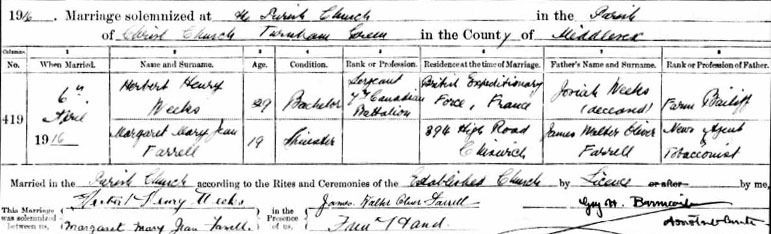 1916. Marriage solemnized at the Parish Church in the Parish
of Christ Church Turnham Green in the County of Middlesex
Columns:— 1 2 3 4 5 6 7 8
No. When Married. Name and Surname. Age. Condition. Rank or Profession. Residence at the time of Marriage. Father's Name and Surname. Rank or Profession of Father.
419 6th April 1916 Herbert Henry Weeks 29 Bachelor Sergeant 7th Canadian Battalion British Expeditionary Force, France Josiah Weeks (deceased) Farm Bailiff
Margaret Mary Jean Farrell 19 Spinster 394 High Road Chiswick James Walter Oliver Farrell News Agent Tobacconist
Married in the Parish Church according to the Rites and Ceremonies of the Established Church by Licence or after by me,
This Marriage was solemnized between us, Herbert Henry Weeks in the Presence of us, James Walter Oliver Farrell Guy H.
Margaret Mary Jean Farrell Hand